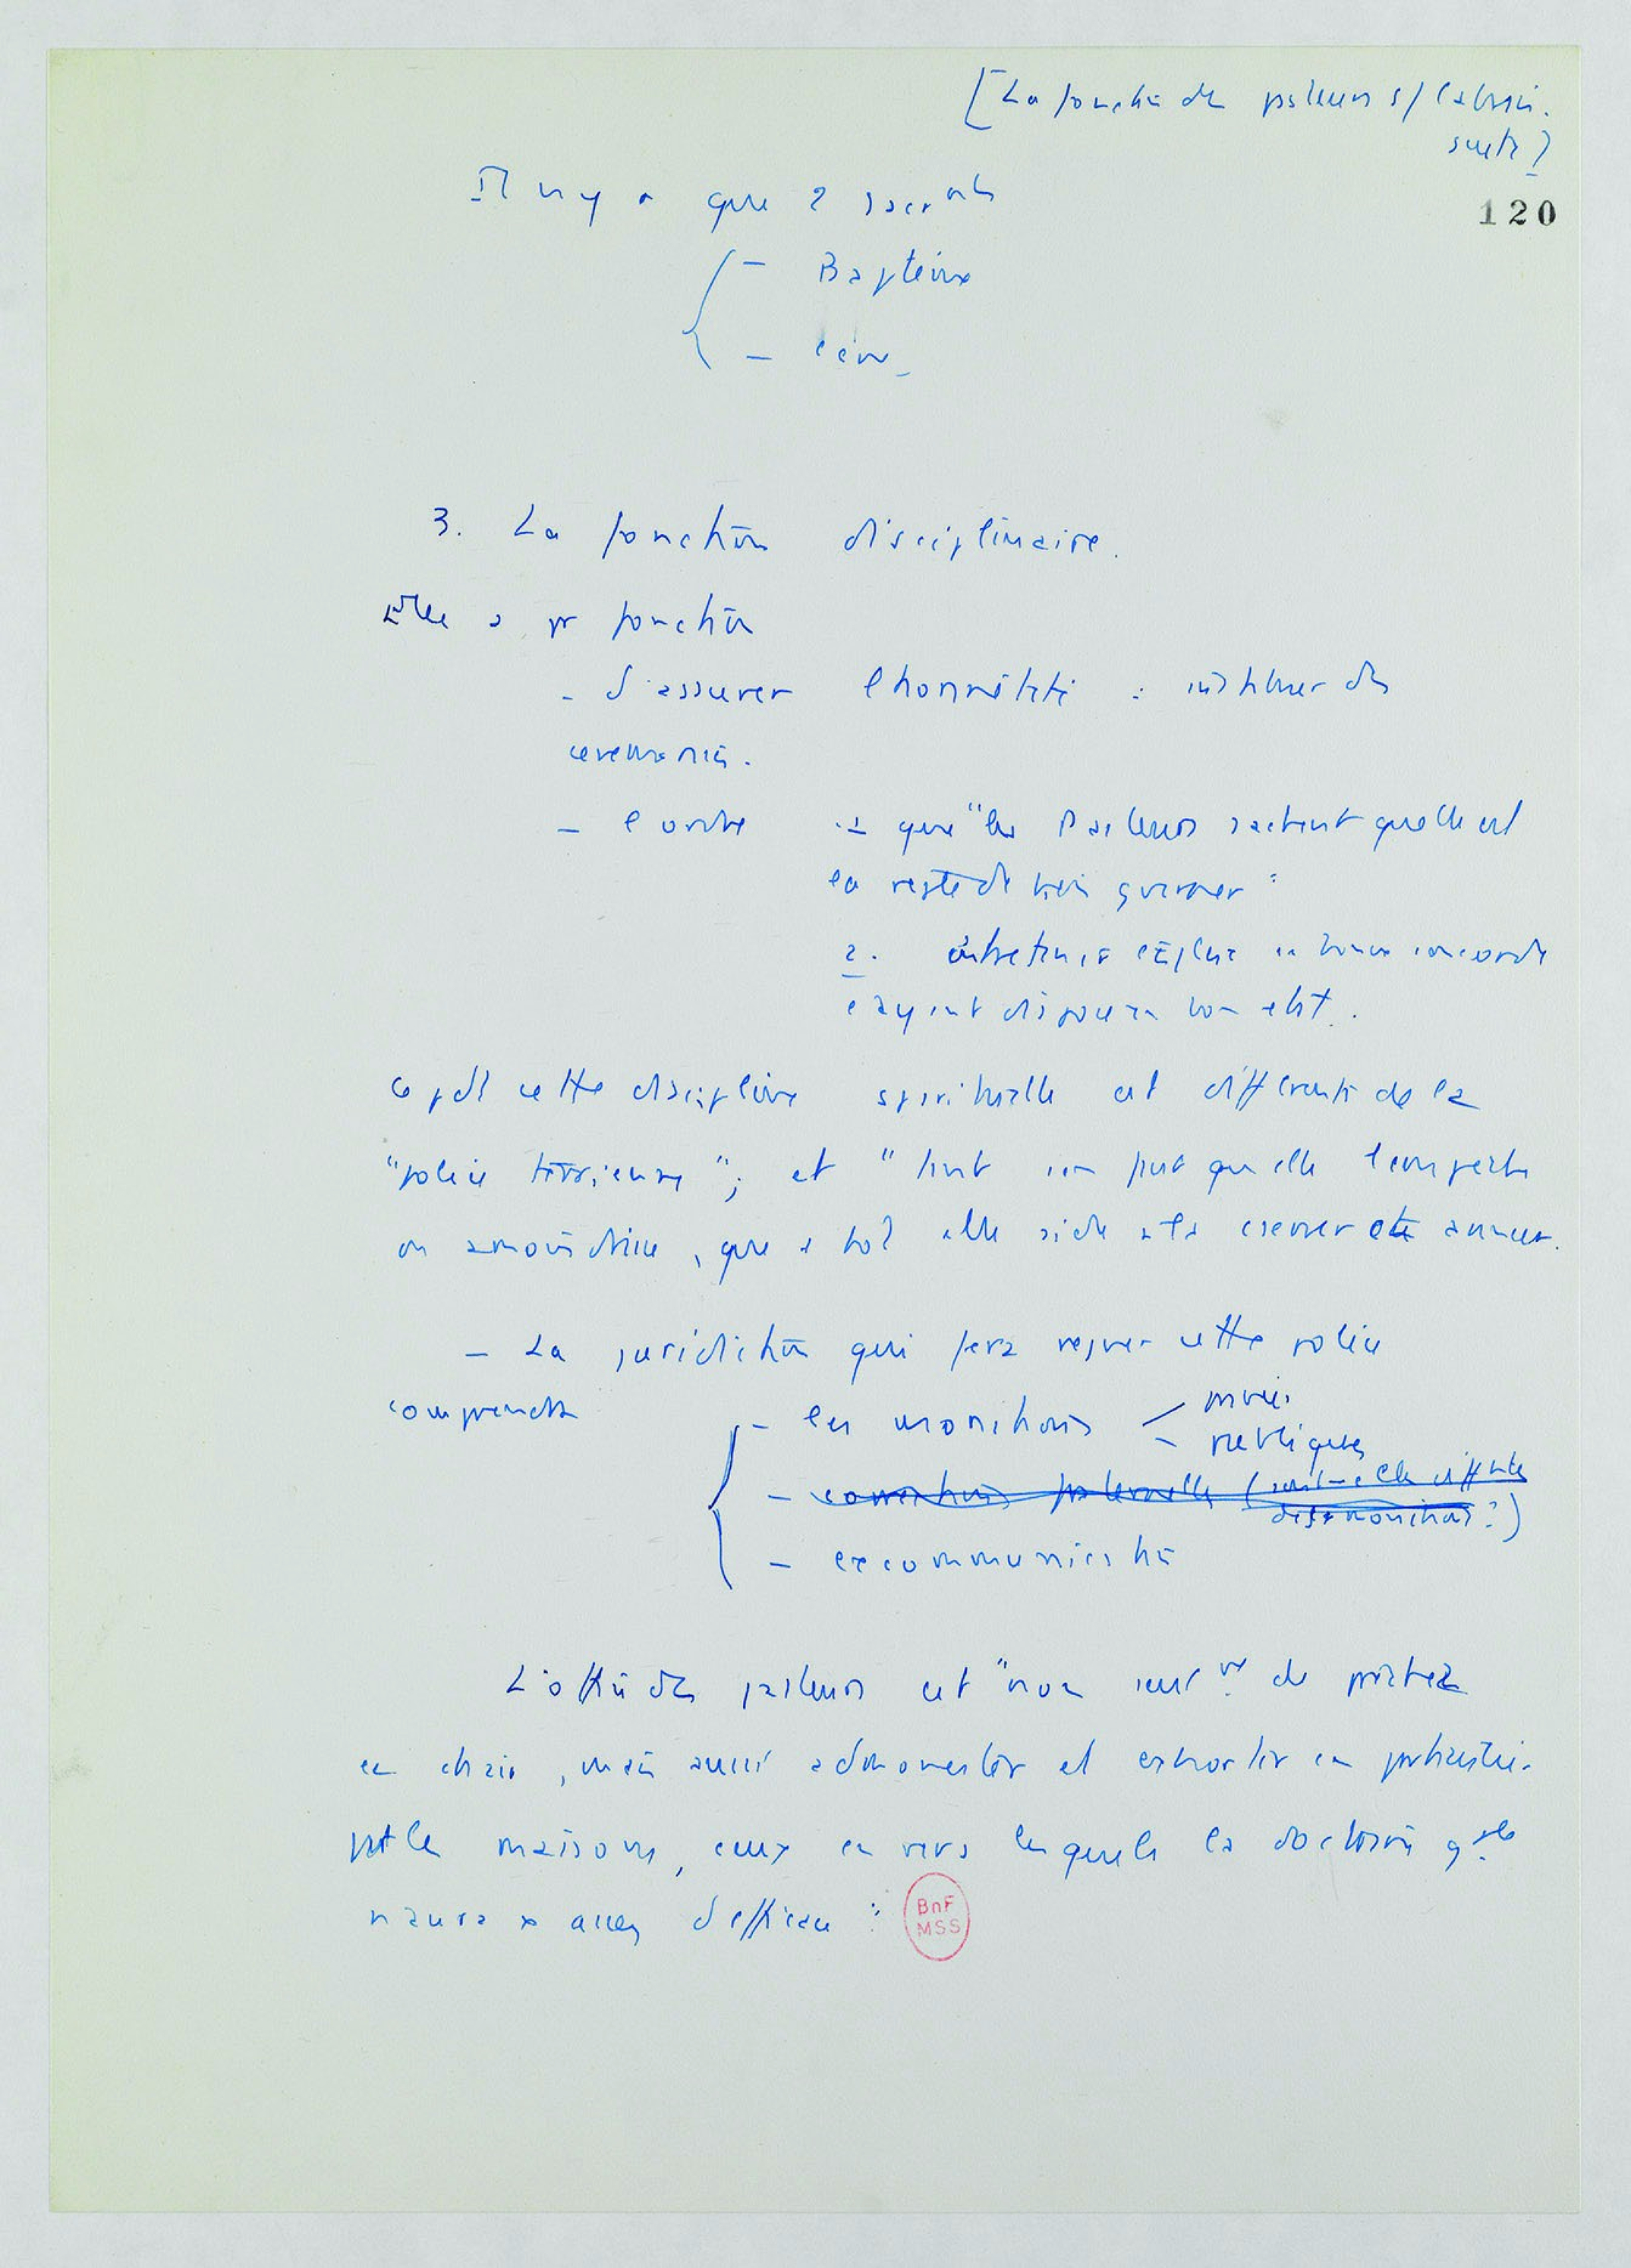 [La fonction des pasteurs s/ Calvin.
suite]
120
Il n y a que 2 sacrmts
– Baptême
– Cène
3. La fonction disciplinaire.
Elle a pr fonction
- d'assurer l honnêteté : instituer des
ceremonies.
– l ordre 1 que "les Pasteurs sachent quelle est
la regle de bien gverner"
2. entretenir l'Eglise en bonne concorde
Cpdt cette discipline spirituelle est differente de la
"police terrienne"; et "tant s en faut qu elle l empesche
ou amoindrisse, que
– La juridiction qui fera regner cette police
comprendra
– les monitions
privées
publiques
– corrections fraternelles (sont-elle differentes
des monitions?)
– excommunication
L'office des pasteurs est "non seult de prêcher
en chaire, mais aussi admonester et exhorter en particulier
par les maisons, ceux en vers lesquels la doctrine gale
n aura pas assez d efficace"
BnF
MSS